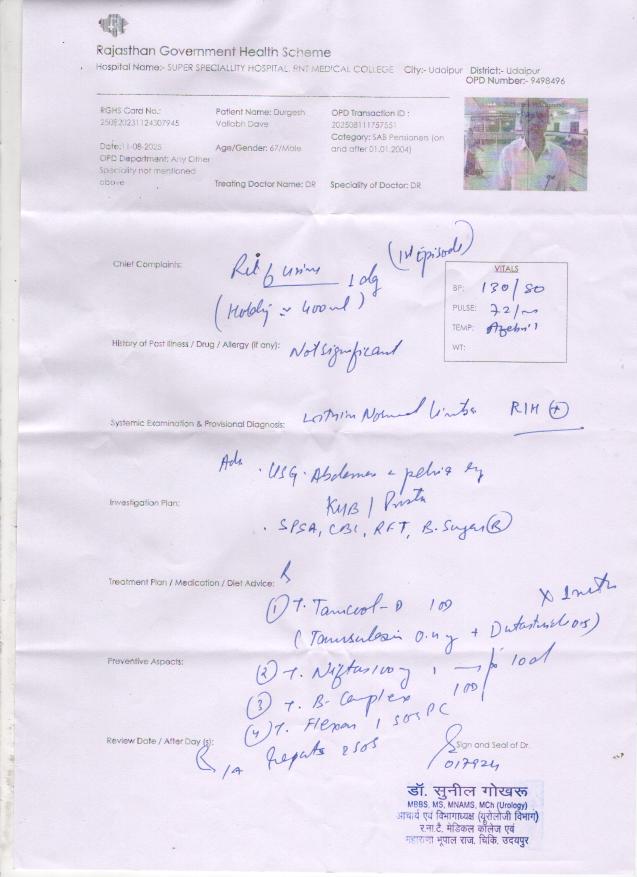 Rajasthan Government Health Scheme
Hospital Name:- SUPER SPECIALLITY HOSPITAL, RNT MEDICAL COLLEGE City:- Udaipur District:- Udaipur
OPD Number:- 9498496
RGHS Card No.:
Patient Name: Durgesh Vallabh Dave
OPD Transaction ID :
202508111757551
Date:11-08-2025
Age/Gender: 67/Male
Category: SAB Pensioners (on and after 01.01.2004)
OPD Department: Any Other Speciality not mentioned above
Treating Doctor Name: DR
Speciality of Doctor: DR
Chief Complaints:
urine 1 day (1st Episode)
(Holding ~ 400ml)
VITALS
BP: 130/80
PULSE: 72/m
TEMP:
WT:
History of Past Illness / Drug / Allergy (if any): Not significant
Systemic Examination & Provisional Diagnosis: Within Normal Limits RIH (+)
Adv . USG. Abdomen & pelvis
Investigation Plan:
KUB /
. SPSA, CBC, RFT, B. Sugar (R)
Treatment Plan / Medication / Diet Advice:
(1) T. 1OD X 1
(Tamsulosin 0.4 + Dutasteride 0.5)
Preventive Aspects:
(2) T. 1 x 10d
(3) T. B-Complex 1OD
(4) T. 1 SOS PC
Review Date / After Day (s):
R/A Reports & SOS
Sign and Seal of Dr.
017924
डॉ. सुनील गोखरू
MBBS, MS, MNAMS, MCh (Urology)
आचार्य एवं विभागाध्यक्ष (यूरोलॉजी विभाग)
र.ना.टै. मेडिकल कॉलेज एवं
महाराणा भूपाल राज. चिकि. उदयपुर